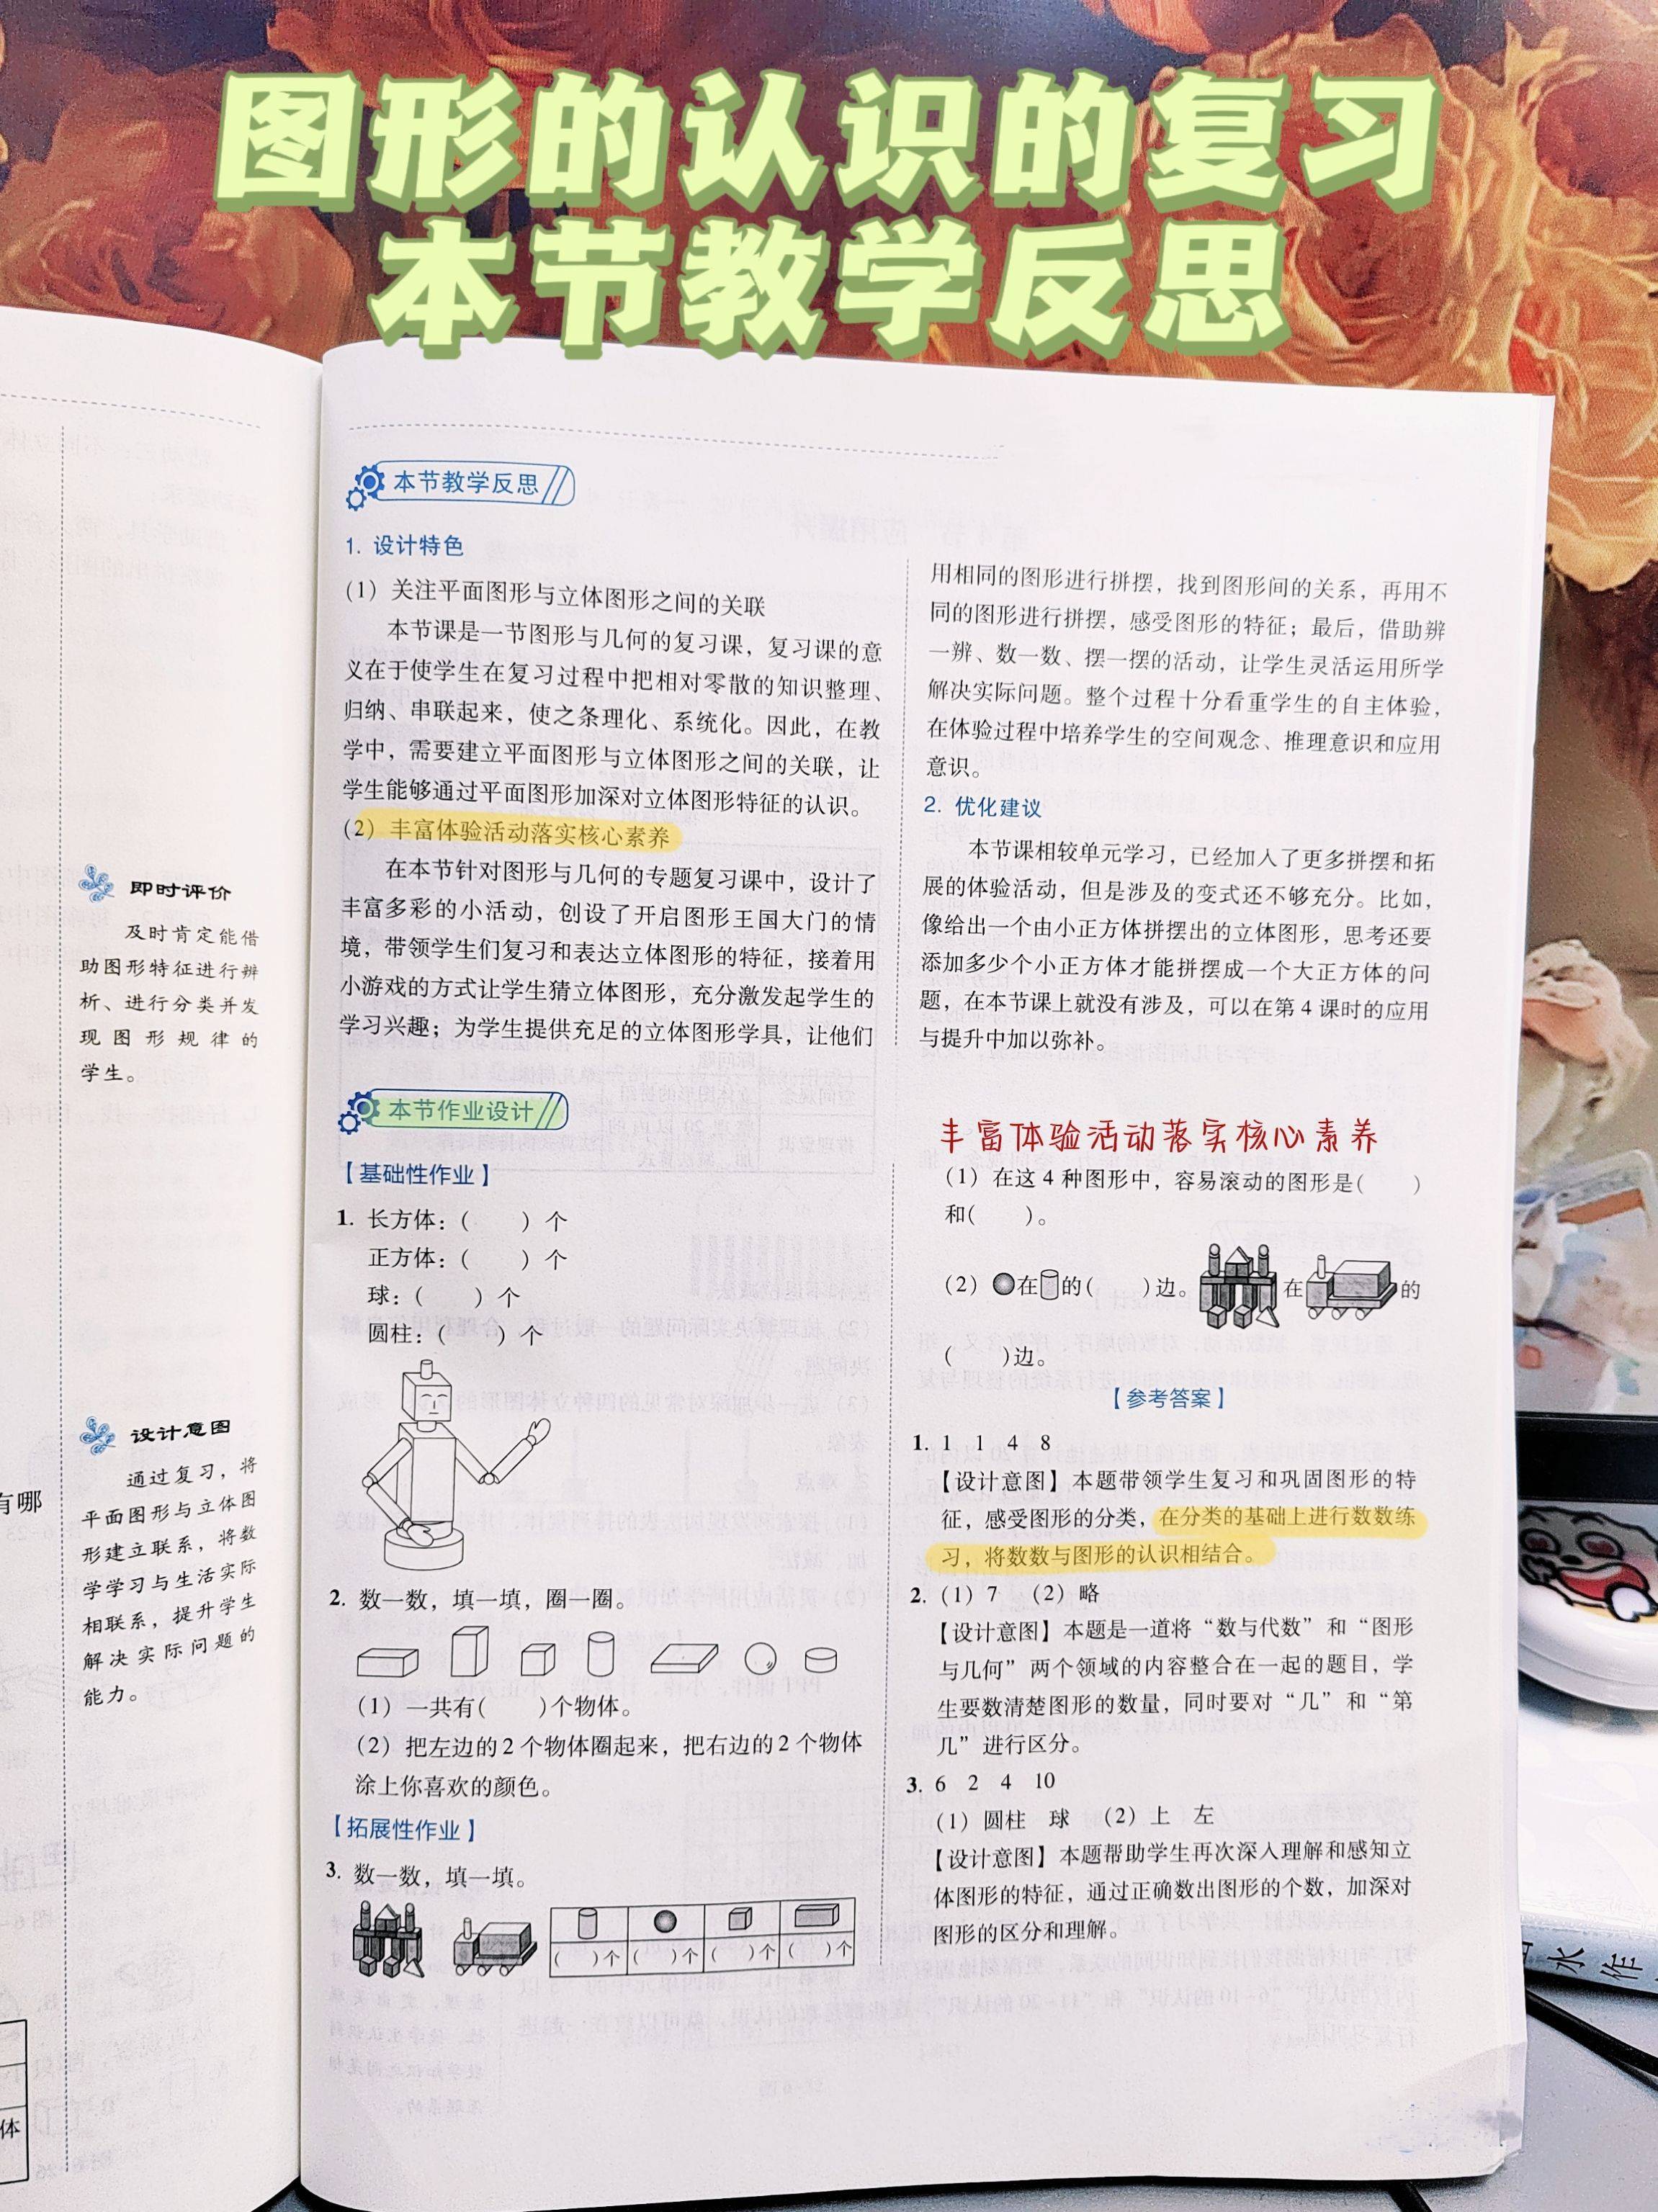 图形的认识的复习
本节教学反思
有哪
体
即时评价
及时肯定能借
助图形特征进行辨
析、进行分类并发
现图形规律的
学生。
设计意图
通过复习，将
平面图形与立体图
形建立联系，将数
学学习与生活实际
相联系，提升学生
解决实际问题的
能力。
本节教学反思
1. 设计特色
（1）关注平面图形与立体图形之间的关联
本节课是一节图形与几何的复习课，复习课的意
义在于使学生在复习过程中把相对零散的知识整理、
归纳、串联起来，使之条理化、系统化。因此，在教
学中，需要建立平面图形与立体图形之间的关联，让
学生能够通过平面图形加深对立体图形特征的认识。
（2）丰富体验活动落实核心素养
在本节针对图形与几何的专题复习课中，设计了
丰富多彩的小活动，创设了开启图形王国大门的情
境，带领学生们复习和表达立体图形的特征，接着用
小游戏的方式让学生猜立体图形，充分激发起学生的
学习兴趣；为学生提供充足的立体图形学具，让他们
用相同的图形进行拼摆，找到图形间的关系，再用不
同的图形进行拼摆，感受图形的特征；最后，借助辨
一辨、数一数、摆一摆的活动，让学生灵活运用所学
解决实际问题。整个过程十分看重学生的自主体验，
在体验过程中培养学生的空间观念、推理意识和应用
意识。
2. 优化建议
本节课相较单元学习，已经加入了更多拼摆和拓
展的体验活动，但是涉及的变式还不够充分。比如，
像给出一个由小正方体拼摆出的立体图形，思考还要
添加多少个小正方体才能拼摆成一个大正方体的问
题，在本节课上就没有涉及，可以在第4课时的应用
与提升中加以弥补。
本节作业设计
【基础性作业】
1. 长方体：（ ）个
正方体：（ ）个
球：（ ）个
圆柱：（ ）个
2. 数一数，填一填，圈一圈。
（1）一共有( )个物体。
（2）把左边的2个物体圈起来，把右边的2个物体
涂上你喜欢的颜色。
【拓展性作业】
3. 数一数，填一填。
( )个 ( )个 ( )个 ( )个
丰富体验活动落实核心素养
（1）在这4种图形中，容易滚动的图形是( )
和( )。
（2） 在 的( )边。 在 的
( )边。
【参考答案】
1. 1 1 4 8
【设计意图】本题带领学生复习和巩固图形的特
征，感受图形的分类，在分类的基础上进行数数练
习，将数数与图形的认识相结合。
2. （1）7 （2）略
【设计意图】本题是一道将“数与代数”和“图形
与几何”两个领域的内容整合在一起的题目，学
生要数清楚图形的数量，同时要对“几”和“第
几”进行区分。
3. 6 2 4 10
（1）圆柱 球 （2）上 左
【设计意图】本题帮助学生再次深入理解和感知立
体图形的特征，通过正确数出图形的个数，加深对
图形的区分和理解。
水作